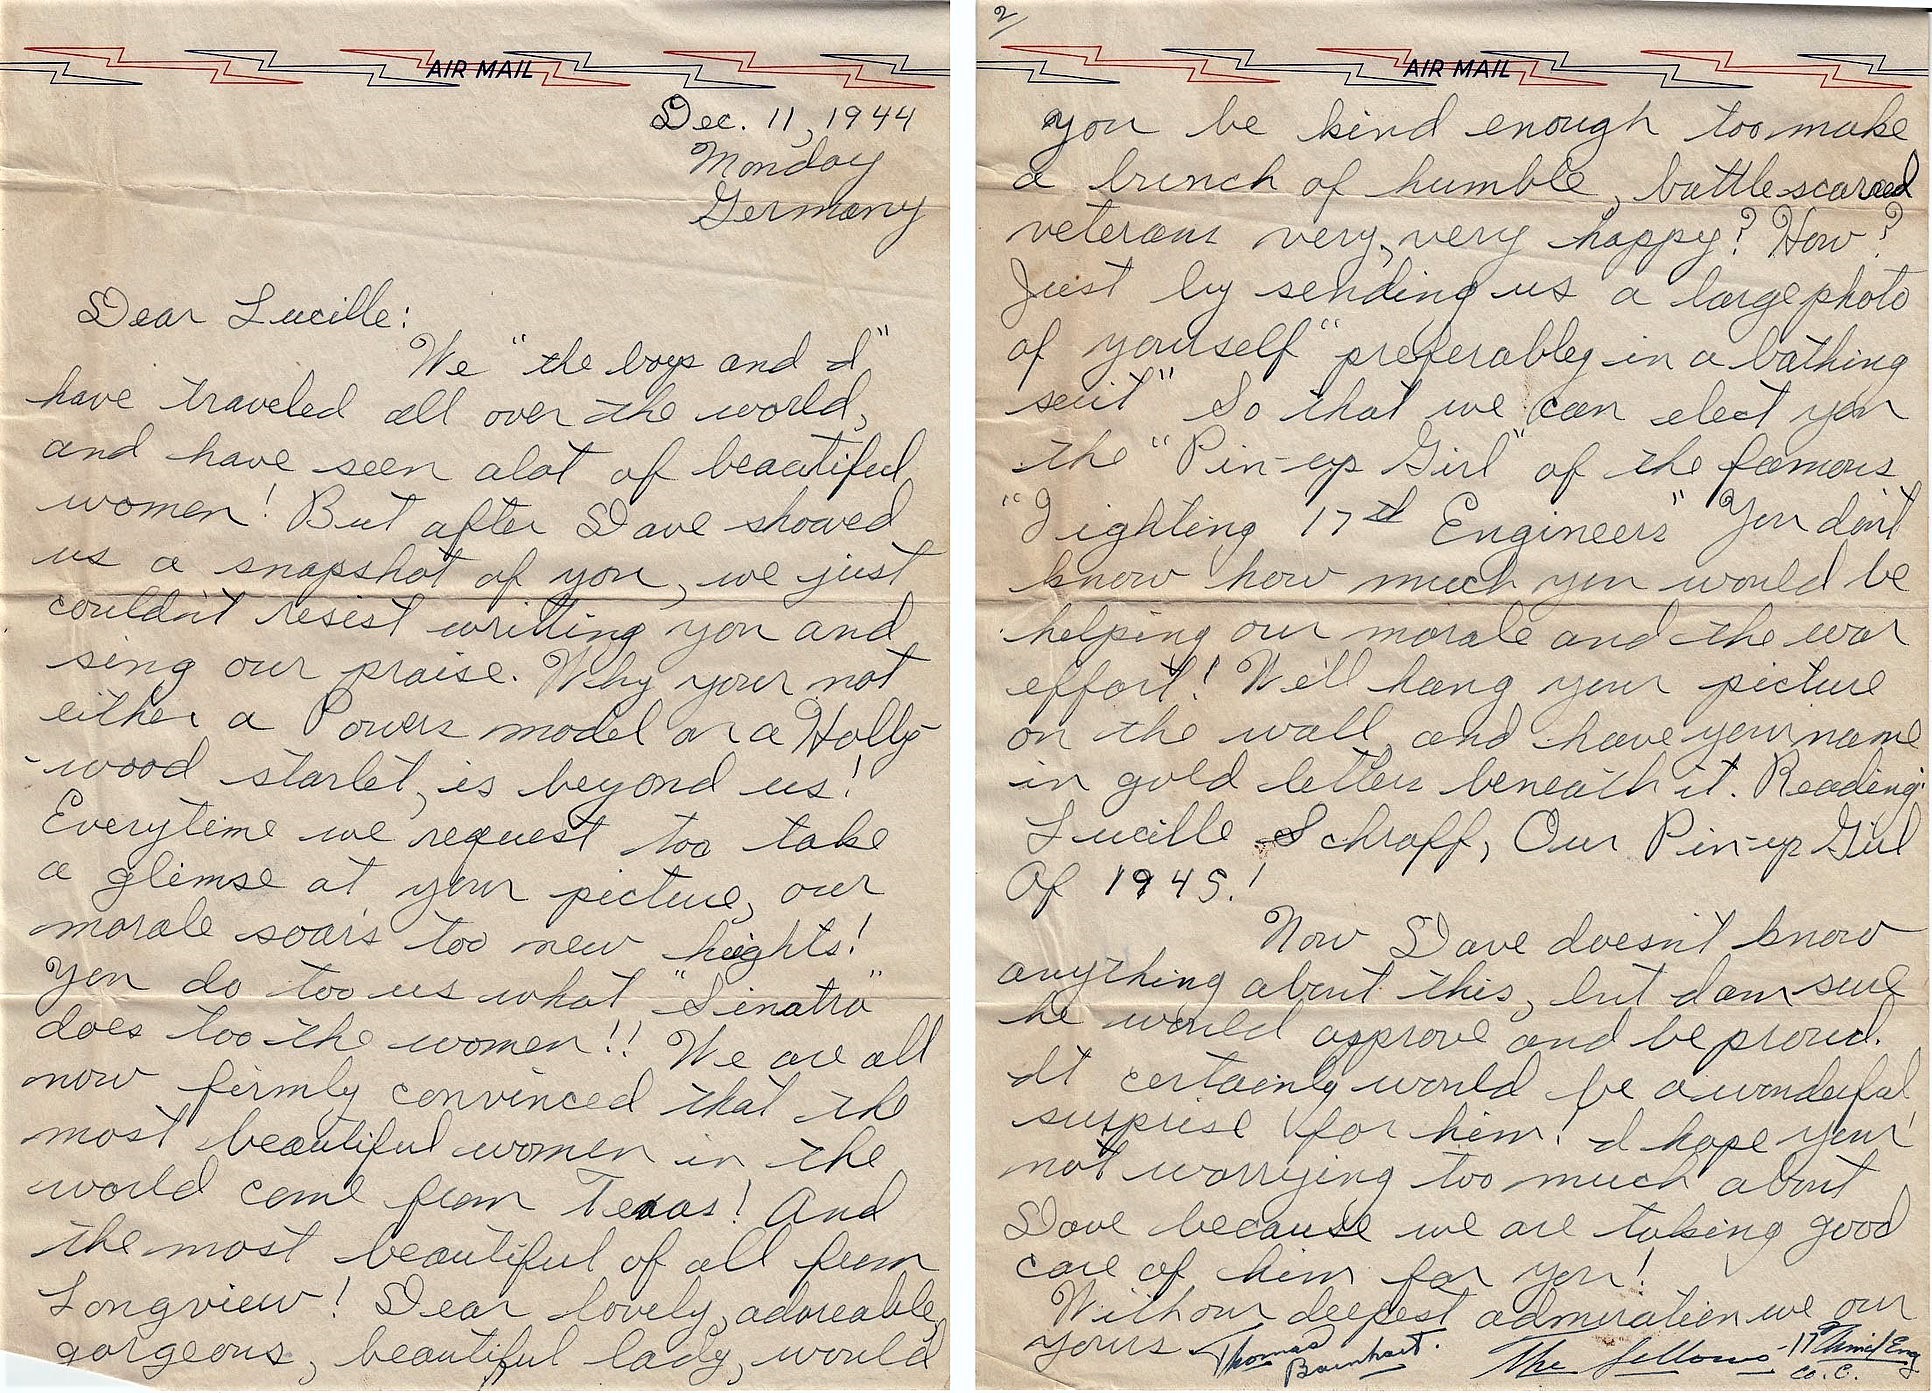 AIR MAIL
Dec. 11, 1944
Monday
Germany
Dear Lucille:
We "the boys and I"
have traveled all over the world,
and have seen alot of beautiful
women! But after Dave showed
us a snapshot of you, we just
couldn't resist writting you and
sing our praise. Why your not
either a Powers model or a Holly-
-wood starlet, is beyond us!
Everytime we request too take
a glimse at your picture, our
morale soars too new heights!
You do too us what "Sinatra"
does too the women!! We are all
now firmly convinced that the
most beautiful women in the
world come from Texas! And
the most beautiful of all from
Longview! Dear lovely, adoreable,
gorgeous, beautiful lady, would
2/
AIR MAIL
you be kind enough too make
a bunch of humble, battlescarred
veterans very, very happy? How?
Just by sending us a large photo
of yourself "preferabley in a bathing
suit" So that we can elect you
the "Pin-up Girl" of the famous
"Fighting 17th Engineers" You don't
know how much you would be
helping our morale and the war
effort! We'll hang your picture
on the wall and have your name
in gold letters beneath it. Reading:
Lucille Schraff, Our Pin-up Girl
Of 1945!
Now Dave doesn't know
anything about this, but I am sure
he would approve and be proud.
It certainly would be a wonderful
surprise for him! I hope your
not worrying too much about
Dave because we are taking good
care of him for you!
With our deepest admiration we our
yours Thomas Barnhart. The fellows - 17th Eng
Co. C.